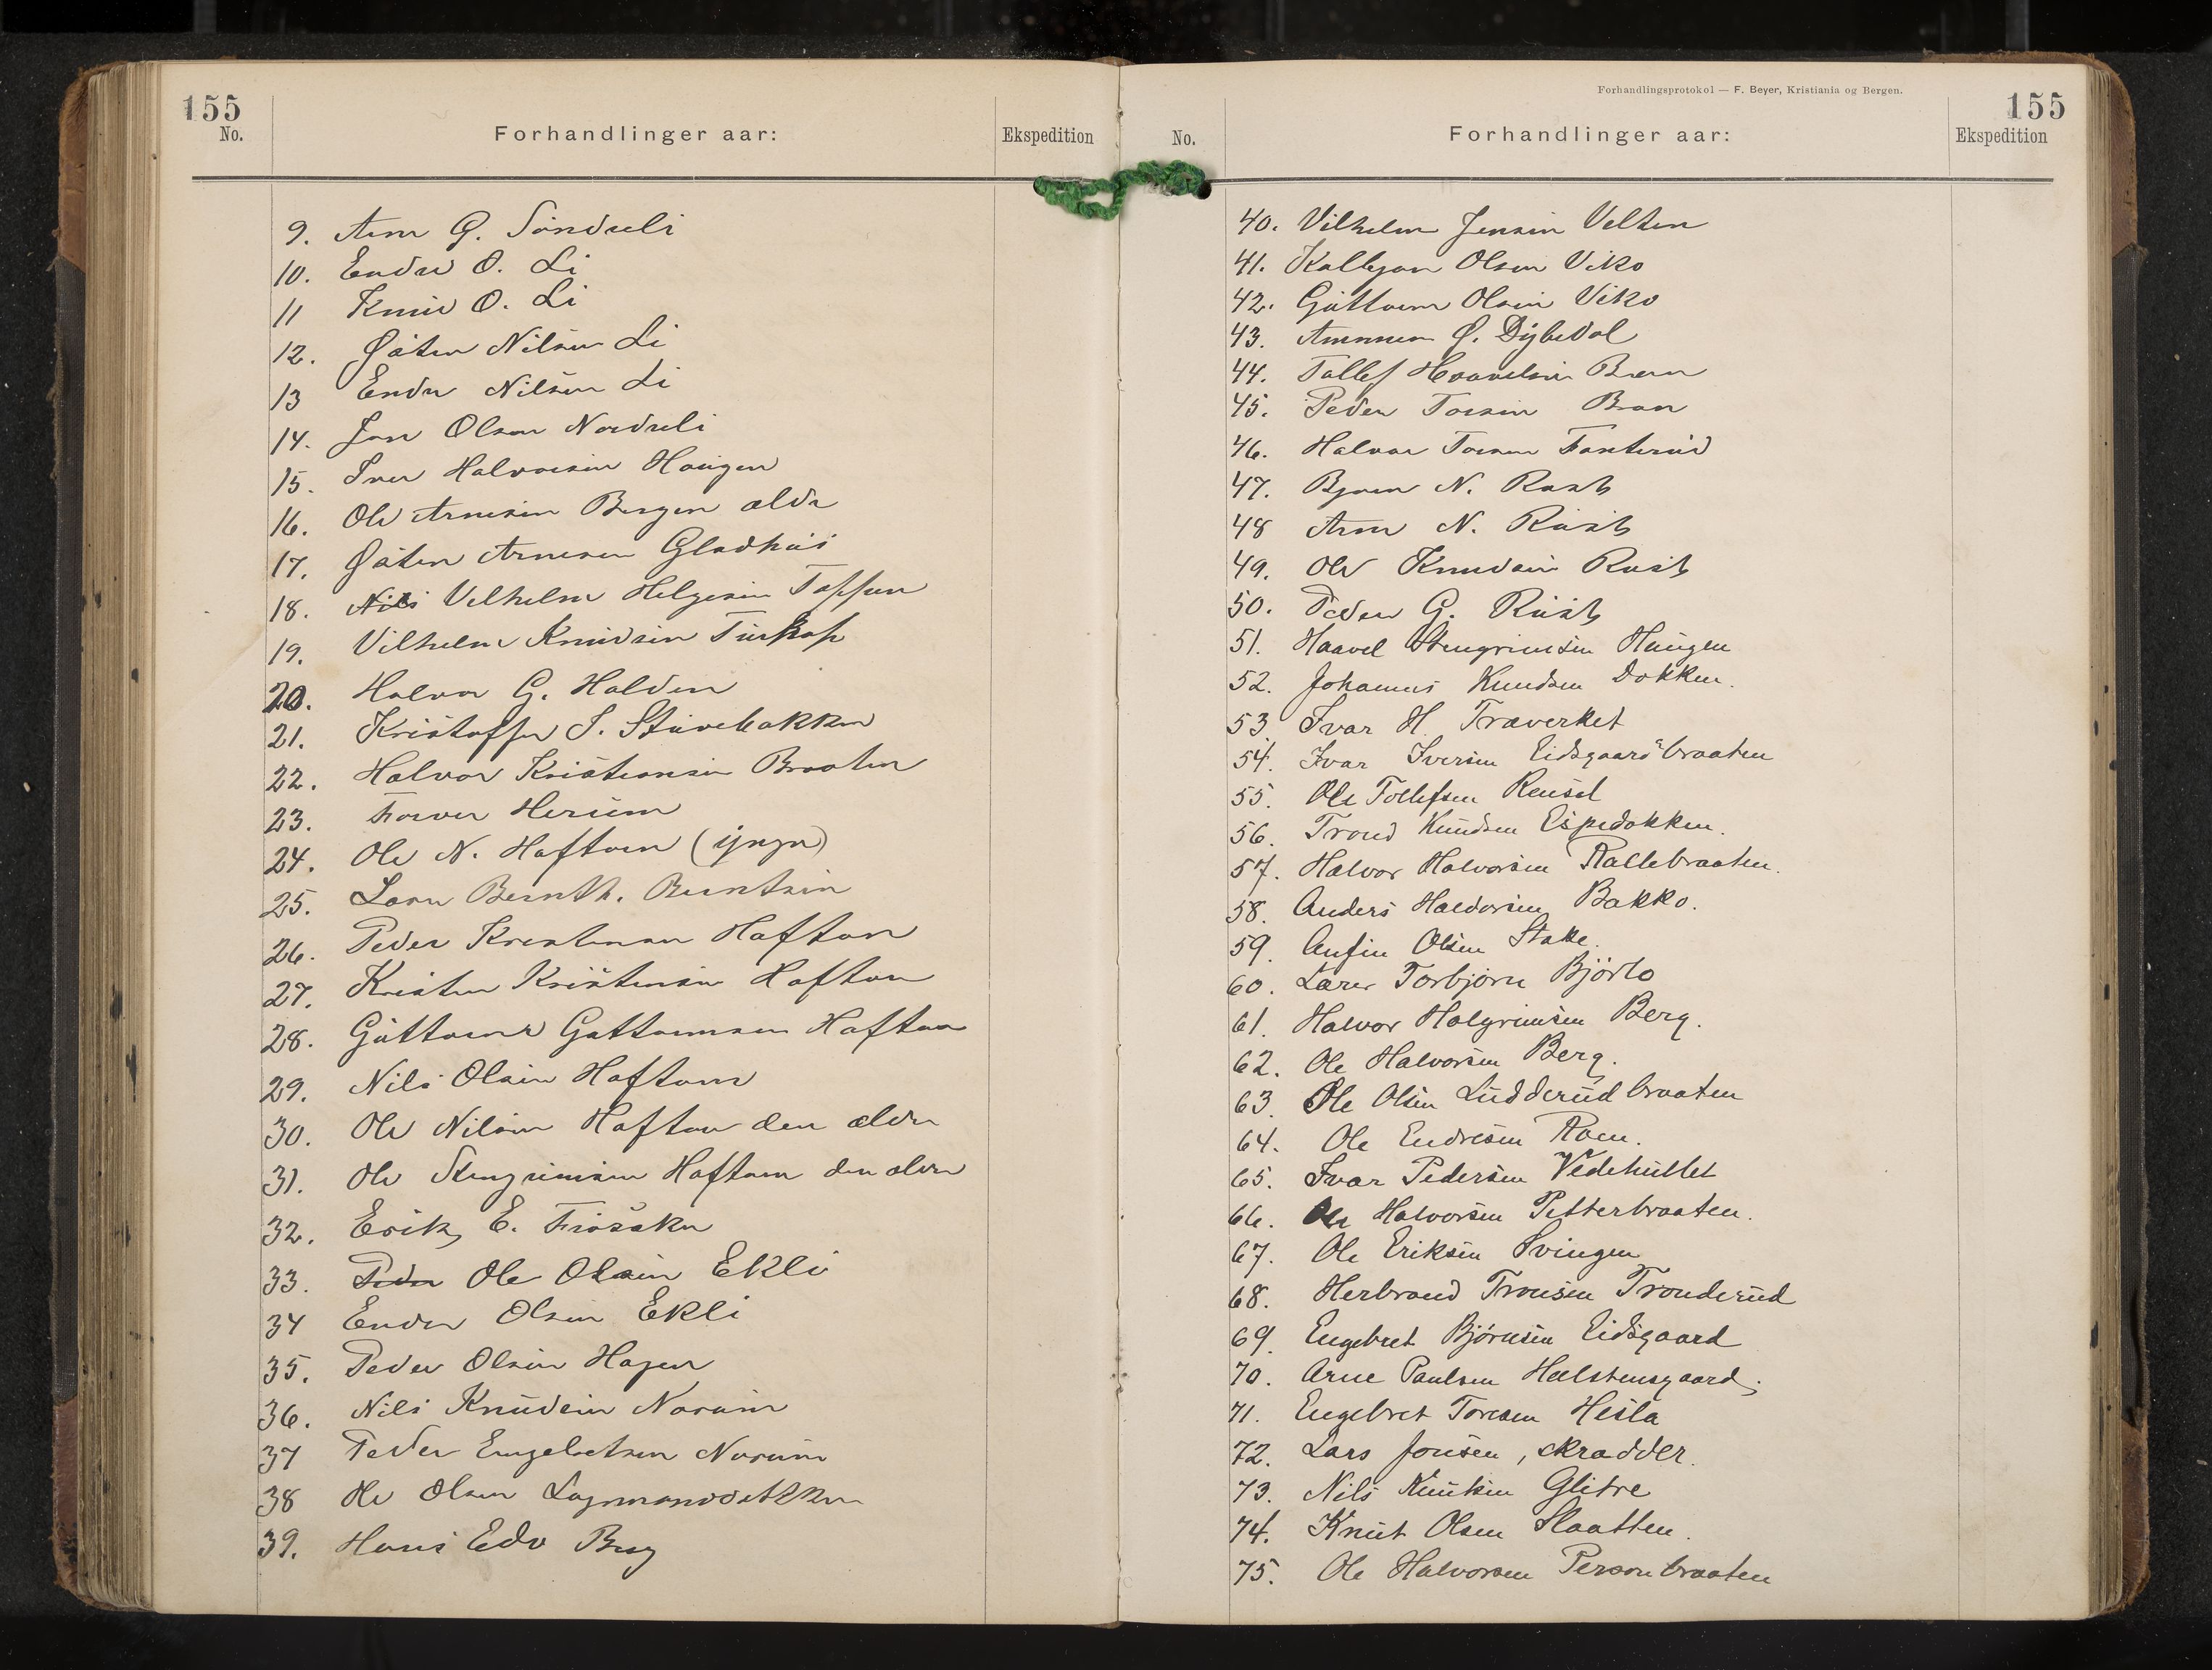 155
No.
Forhandlinger aar:
Ekspedition
9. Arne G. Söndreli
10. Endre O. Li
11 Knud O. Li
12. Østen Nilsen Li
13 Endre Nilsen Li
14. Jon Olsen Nordreli
15. Iver Halvorsen Haugen
16. Ole Arnesen Bergen ældr
17. Østen Arnesen Gladhus
18. Nils Vilhelm Helgesen
19. Vilhelm Knudsen
20. Halvor G. Halden
21. Kristoffer S. Stuvebakken
22. Halvor Kristiansen Braaten
23. Herium
24. Ole N. Haftorn (yngr)
25. Bernth. Berntsen
26. Peder Kristensen Hafton
27. Kristen Kristensen Hafton
28. Guttorm Guttormsen Hafton
29. Nils Olsen Haftorn
30. Ole Nilsen Hafton den ældre
31. Ole Stengrimsen Haftorn den ældre
32. Erik E. Frøsaker
33. Peder Ole Olsen Ekli
34 Endre Olsen Ekli
35. Peder Olsen Hagen
36. Nils Knudsen Norum
37 Peder Engebretsen Norum
38 Ole Olsen
39. Hans Edv Berg
Forhandlingsprotokol — F. Beyer, Kristiania og Bergen.
155
No.
Forhandlinger aar:
Ekspedition
40. Vilhelm Jensen Velten
41. Kolbjørn Olsen Viko
42. Guttorm Olsen Viko
43. Ø. Dybedal
44. Tollef Haavelsen Bræn
45. Peder Torsen Bræn
46. Halvor Torsen Fanterud
47. Bjørn N. Rust
48 Arne N. Rust
49. Ole Knudsen Rust
50. Peder G. Rust
51. Haavel Stengrimsen Haugen
52. Johannes Knudsen Dokken.
53 Ivar H. Traverket
54. Ivar Iversen Eidsgaardsbraaten
55. Ole Tollefsen Reusel
56. Trond Knudsen Espedokken.
57. Halvor Halvorsen Rallebraaten.
58. Anders Haldorsen Bakko.
59. Anfin Olsen Stake.
60. Lærer Torbjørn Bjørlo
61. Halvor Holgrimsen Berg.
62. Ole Halvorsen Berg.
63. Ole Olsen Ludderudbraaten
64. Ole Endresen Roen.
65. Ivar Pedersen Vedehullet
66. Ole Halvorsen Petterbraaten.
67. Ole Eriksen Svingen
68. Herbrand Tronsen Tronderud
69. Engebret Bjørnsen Eidsgaard
70. Arne Paulsen Halstensgaard.
71. Engebret Toresen Hesla
72. Lars Jonsen, skrædder.
73. Nils Knutsen Glitre
74. Knut Olsen Slaatten.
75. Ole Halvorsen Personbraaten